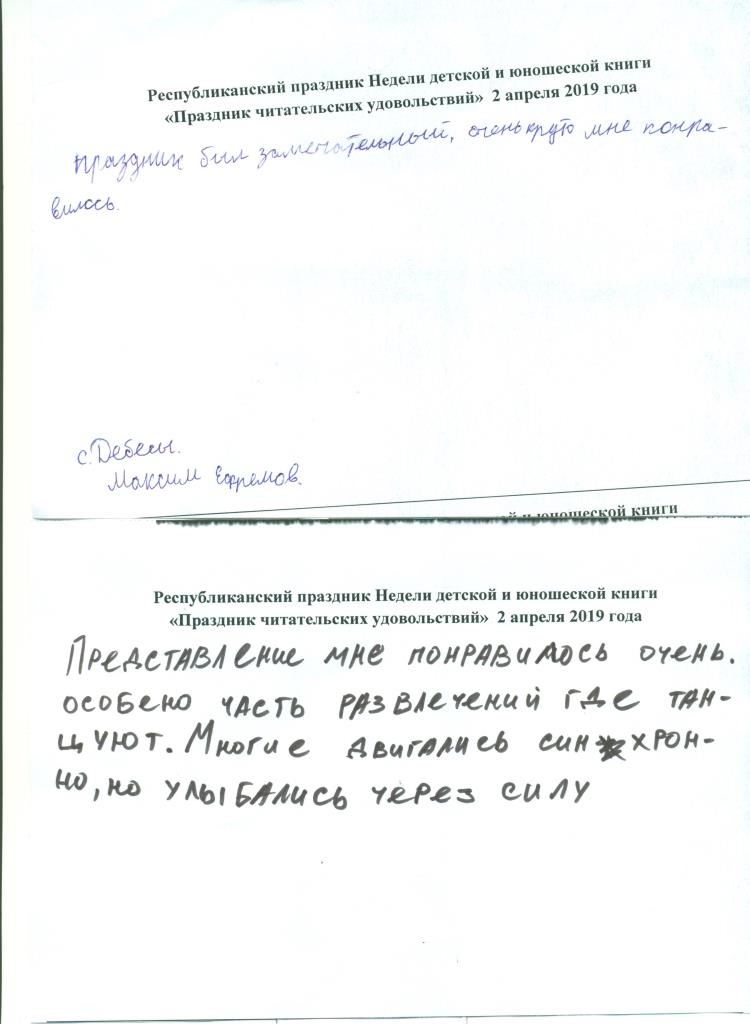 Республиканский праздник Недели детской и юношеской книги
«Праздник читательских удовольствий» 2 апреля 2019 года
праздник был замечательный, очень круто мне понра-
вилось.
с. Дебесы.
Максим Ефремов.
й и юношеской книги
Республиканский праздник Недели детской и юношеской книги
«Праздник читательских удовольствий» 2 апреля 2019 года
Представление мне понравилось очень.
особено часть развлечений где тан-
цуют. Многие двигались син хрон-
но, но улыбались через силу